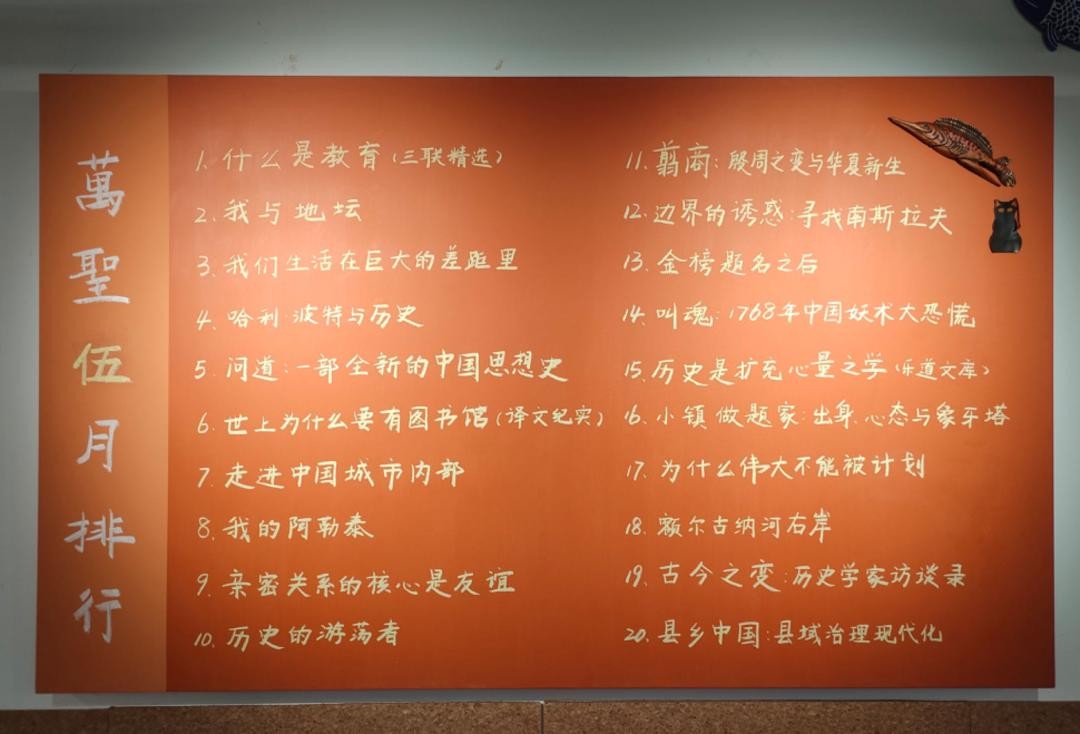 萬聖伍月排行
1. 什么是教育(三联精选)
2. 我与地坛
3. 我们生活在巨大的差距里
4. 哈利·波特与历史
5. 问道:一部全新的中国思想史
6. 世上为什么要有图书馆(译文纪实)
7. 走进中国城市内部
8. 我的阿勒泰
9. 亲密关系的核心是友谊
10. 历史的游荡者
11. 翦商:殷周之变与华夏新生
12. 边界的诱惑:寻找南斯拉夫
13. 金榜题名之后
14. 叫魂:1768年中国妖术大恐慌
15. 历史是扩充心量之学(乐道文库)
16. 小镇做题家:出身、心态与象牙塔
17. 为什么伟大不能被计划
18. 额尔古纳河右岸
19. 古今之变:历史学家访谈录
20. 县乡中国:县域治理现代化